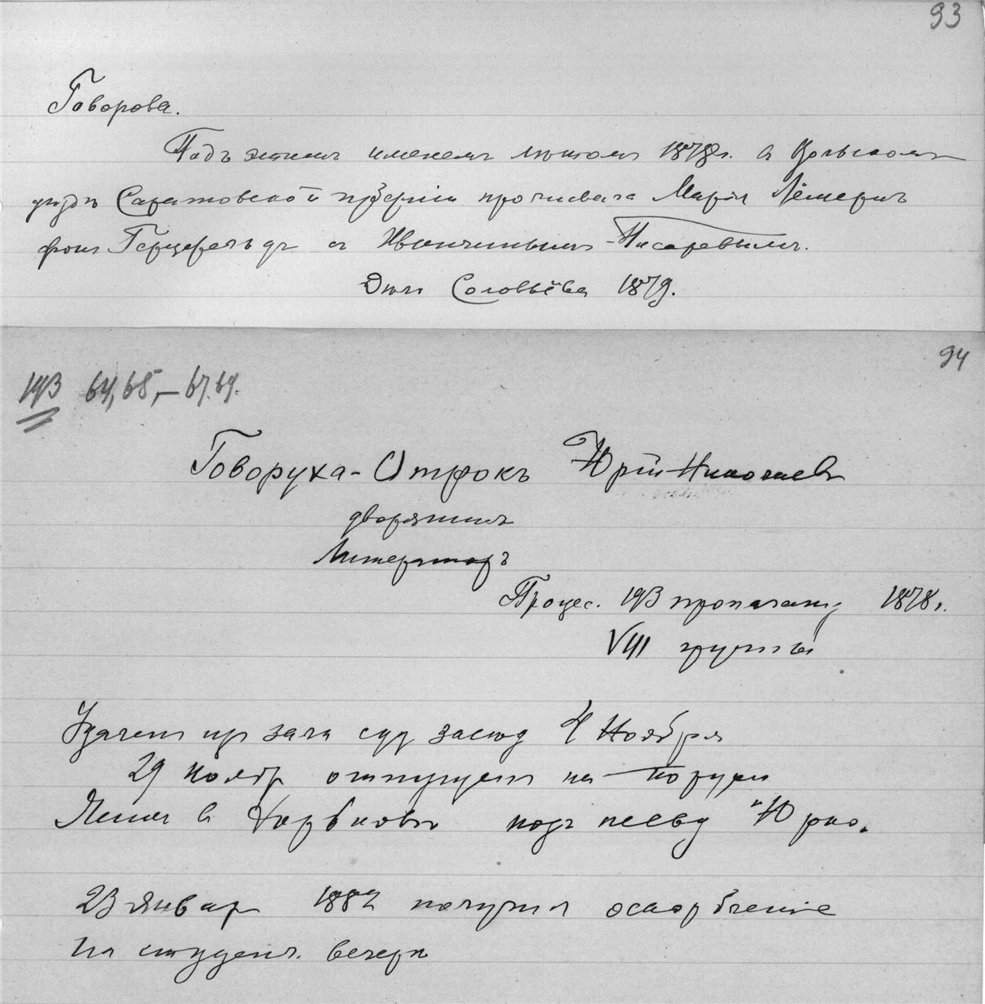 93
Говорова.
Подъ этимъ именемъ лѣтомъ 1878г. въ Вольскомъ
уѣздѣ Саратовской губерніи проживала Марія Лешернъ
фонъ Герцфельдъ съ Иванчинымъ-Писаревымъ.
Дѣло Соловьёва 1879.
94
193 64, 65,–67.69.
Говоруха-Отрокъ Юрій Николаев
дворянинъ
Литераторъ
Процес. 193 пропаганд 1878г.
VIII группы
Удален из зала суд засед 4 Ноября
29 Ноябр отпущенъ на поруки
Писал в Харькове подъ псевд "Юрко.
23 Январ 1882 получил оскорбленіе
На студенч. вечерѣ